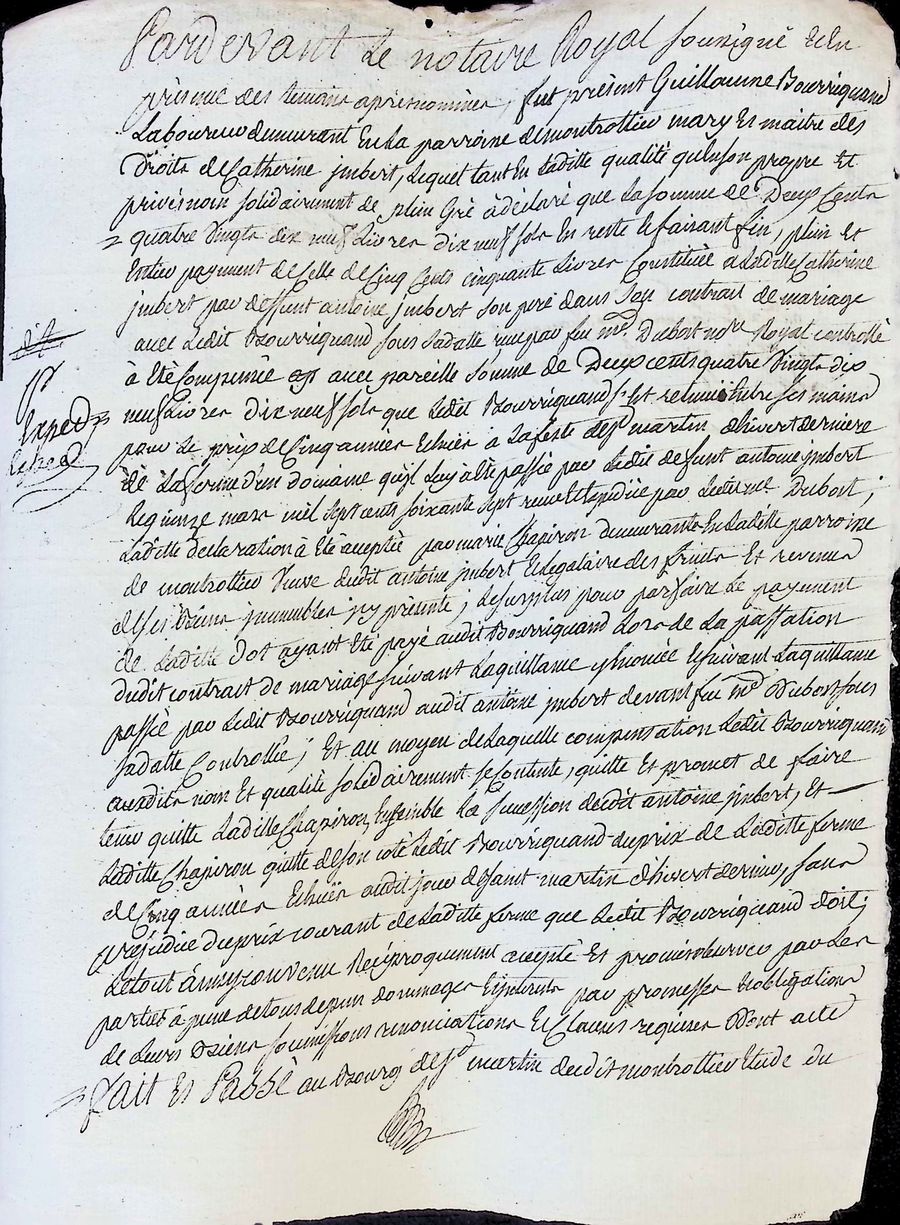 Pardevant Le notaire Royal sousigné & en
présence des temoins apresnommes, fut présent Guillaume Bourriquand
Laboureur demeurant En la parroisse de montrottier mary Et maitre des
Droits de Catherine jmbert, Lequel tant En Laditte qualité qu'en son propre Et
privé nom solidairement de plein Gré à déclaré que La somme de Deux Cents
quatre Vingts dix neuf Livres dix neuf sols En reste Et faisant fin, plein et
Entier payement de Celle de Cinq Cents cinquante Livres Constituée a Laditte Catherine
jmbert par deffunt antoine jmbert son pere dans son contrat de mariage
avec Ledit Bourriquand sous sa datte reçu par feu me Dubost nore Royal controllé
à Eté Compensée avec pareille somme de Deux cents quatre Vingts dix
neuf Livres dix neuf sols que Ledit Bourriquand s'Est retenüe Entre ses mains
pour Le prix de Cinq années Echues à La feste de st martin d'hivert derniere
de La ferme d'un domaine qu'il Luy a été passée par Ledit defunt antoine jmbert
Le quinze mars mil sept cents soixante sept reçue Et Expediée par Ledit me Dubost ;
Laditte declaration à Eté acceptée par marie Chapiron demeurante En Laditte parroisse
de montrottier Veuve dudit antoine jmbert Et Legataire des fruits Et revenus
de ses Biens jmmeubles jcy présente ; Le surplus pour parfaire Le payement
de Laditte Dot ayant Eté payé audit Bourriquand Lors de La passation
dudit contrat de mariage suivant La quittance y Enoncée Et suivant La quittance
passée par Ledit Bourriquand audit antoine jmbert devant feu me Dubost sous
sa datte Controllée ; Et au moyen de Laquelle compensation Ledit Bourriquand
auxdits nom Et qualité solidairement se Contente, quitte Et promet de faire
tenir quitte Laditte Chapiron, Ensemble La succession dudit antoine jmbert, Et
Laditte Chapiron quitte de son coté Ledit Bourriquand du prix de Laditte ferme
de Cinq années Echues audit jour de saint martin d'hivert dernier, sans
préjudice du prix courant de Laditte ferme que Ledit Bourriquand doit ;
Le tout Ainsy convenu Réciproquement accepté Et promis observer par Les
parties à peine de tous depens dommages Et jnterets par promesses Et obligations
de Leurs Biens soumissions renonciations Et Clauses requises Dont acte
fait Et Passé au Bourg de st martin dudit montrottier Etude du
Exped
Exped